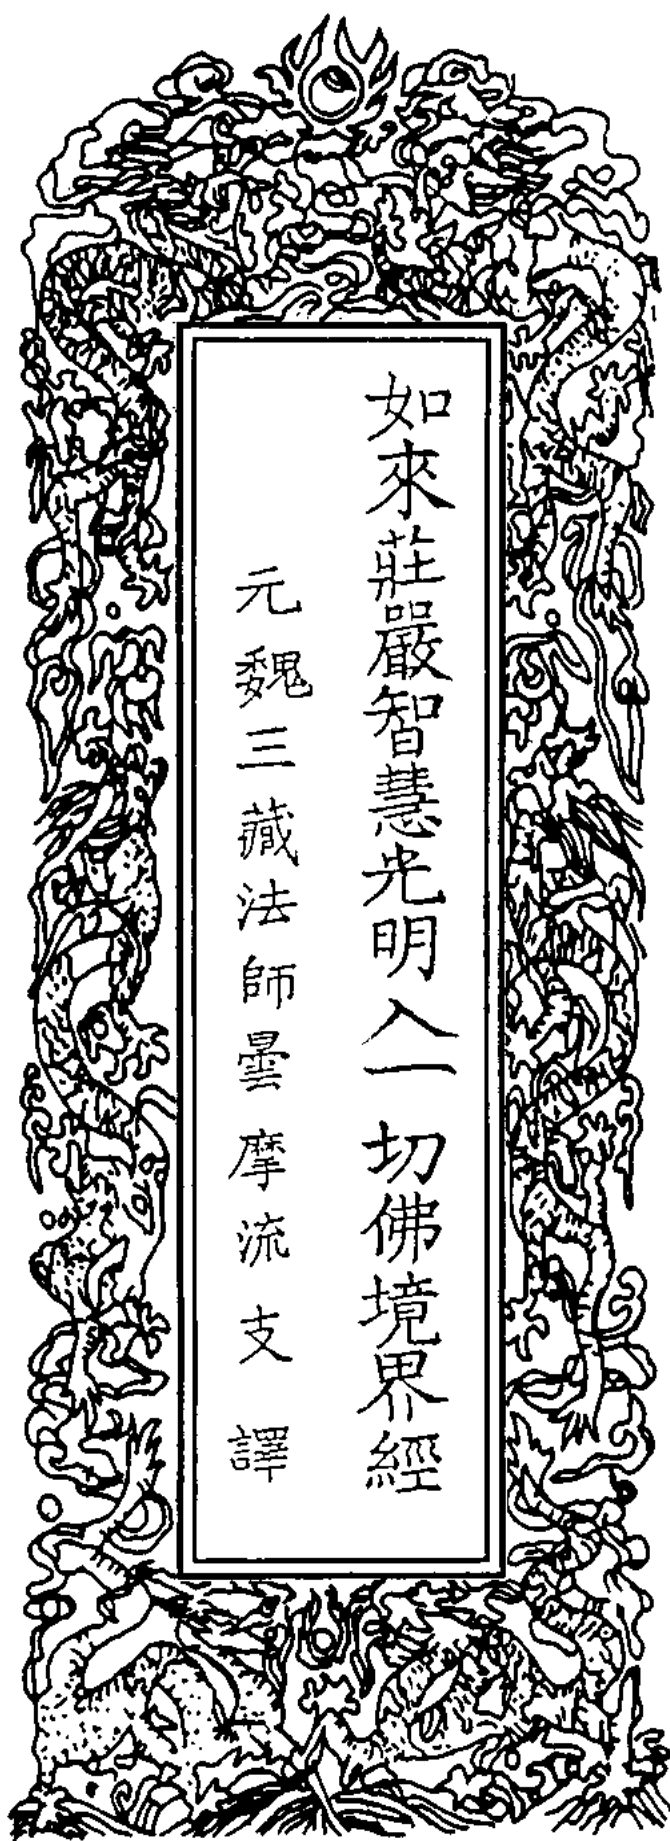 如來莊嚴智慧光明入一切佛境界經
元魏三藏法師曇摩流支 譯